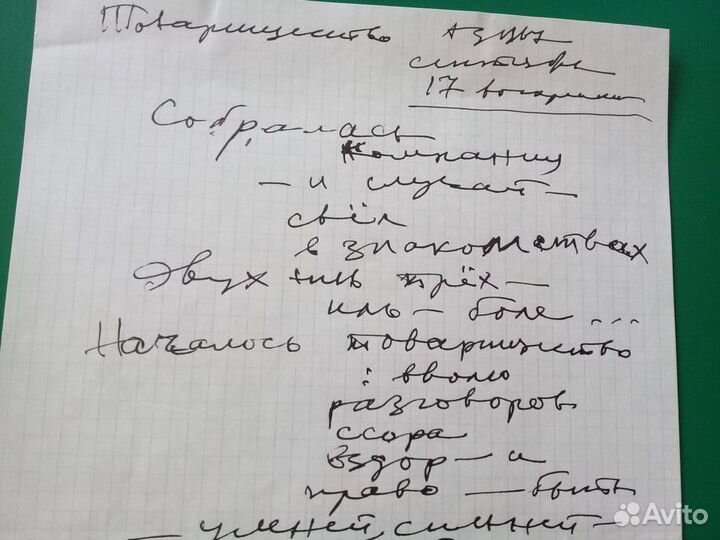 Товарищество
17
Собралась
компанию
– и случай –
свёл
в знакомствах
Двух иль трёх –
иль – боле ...
Началось товарищество
: вволю
разговоров
ссора
вздор – и
право – быть
– умней, сильней –
Avito